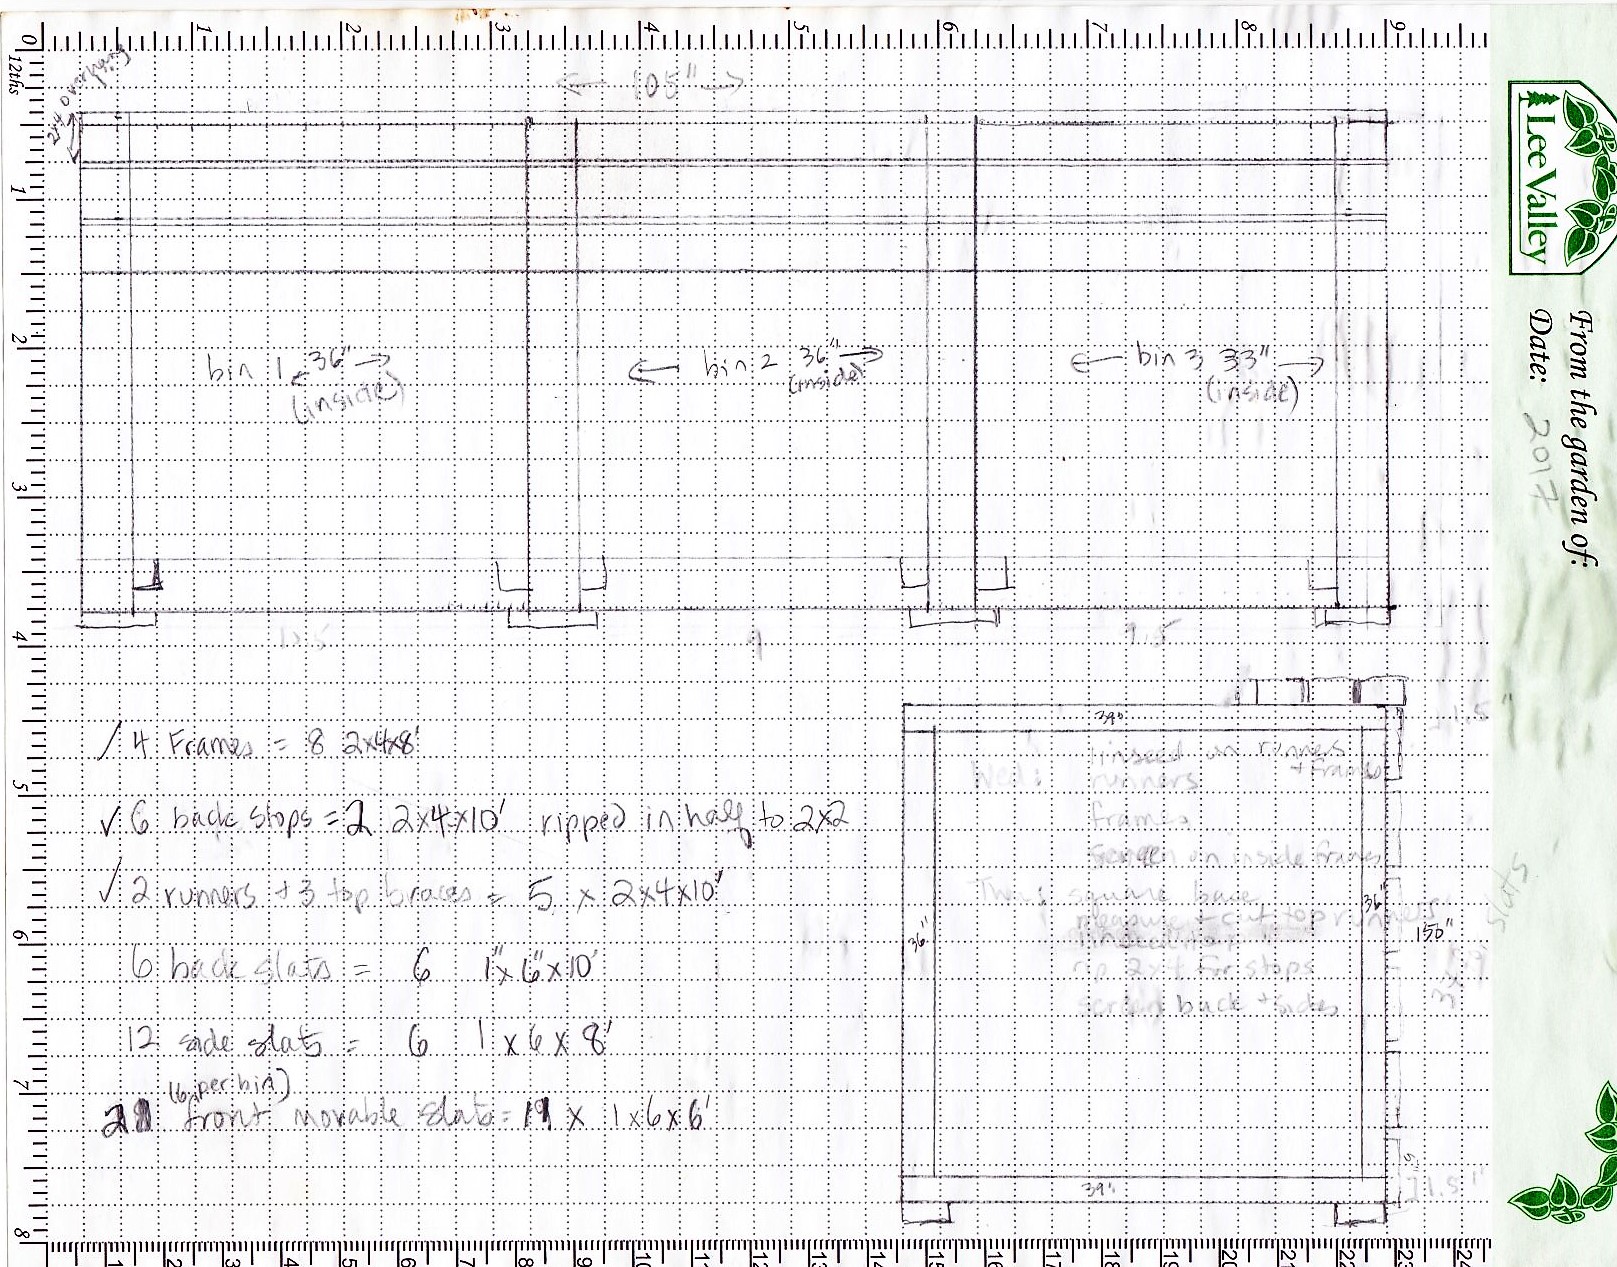 0 1 2 3 4 5 6 7 8 9
12ths
105"
1
2
bin 1 36"
(inside)
bin 2 36"
(inside)
bin 3 33"
(inside)
3
4
9
9.5
/ 4 Frames = 8 2x4x8'
39"
1.5"
linseed on runners
+ frames
Wed: runners
frames
5
✓ 6 back stops = 2 2x4x10' ripped in half to 2x2
Screen on inside frames
✓ 2 runners + 3 top braces = 5 x 2x4x10'
Thu: square base
measure + cut top runners
36"
36"
150"
slats
6
6 back slats = 6 1"x6"x10'
rip 2x4 for stops
screen back + sides
12 side slats = 6 1x6x8'
7
(6 per bin)
front movable slats = x 1x6x6'
39"
1.5"
8
1 2 3 4 5 6 7 8 9 10 11 12 13 14 15 16 17 18 19 20 21 22 23 24
Lee Valley
From the garden of:
Date: 2017